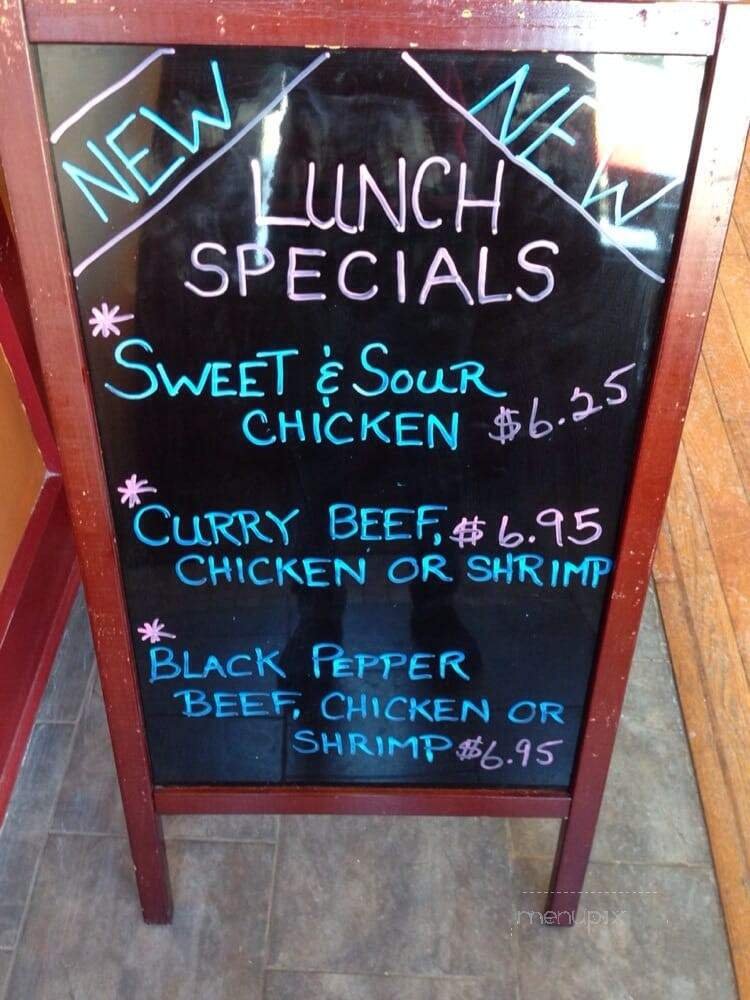 NEW
NEW
LUNCH
SPECIALS
* SWEET & SOUR
CHICKEN $6.25
* CURRY BEEF, $6.95
CHICKEN OR SHRIMP
* BLACK PEPPER
BEEF, CHICKEN OR
SHRIMP $6.95
menupix